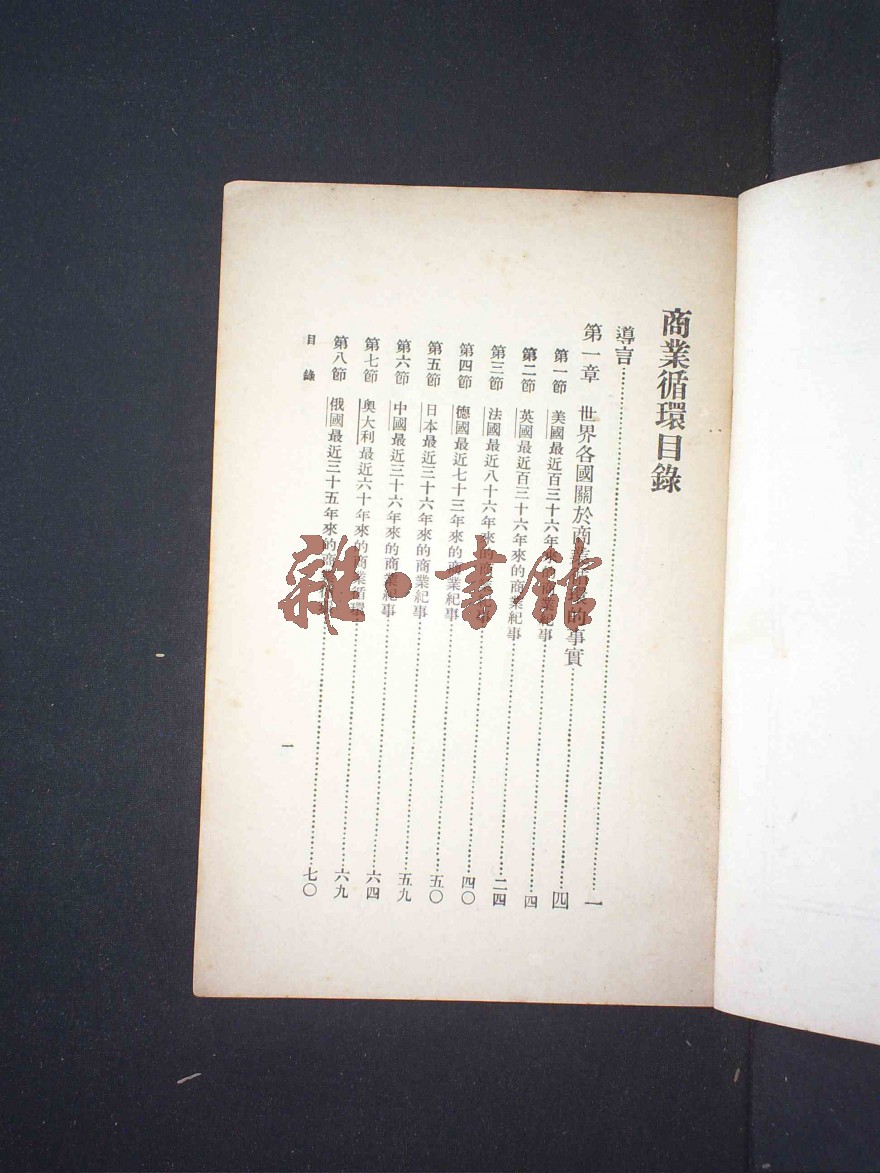 商業循環目錄
導言……一
第一章 世界各國關於商業的事實……四
第一節 美國最近百三十六年來的商業紀事……四
第二節 英國最近百三十六年來的商業紀事……二四
第三節 法國最近八十六年來的商業紀事……四〇
第四節 德國最近七十三年來的商業紀事……五〇
第五節 日本最近三十六年來的商業紀事……五九
第六節 中國最近三十六年來的商業紀事……六四
第七節 奧大利最近六十年來的商業循環……六九
第八節 俄國最近三十五年來的商業事……七〇
目錄
一
雜·書館